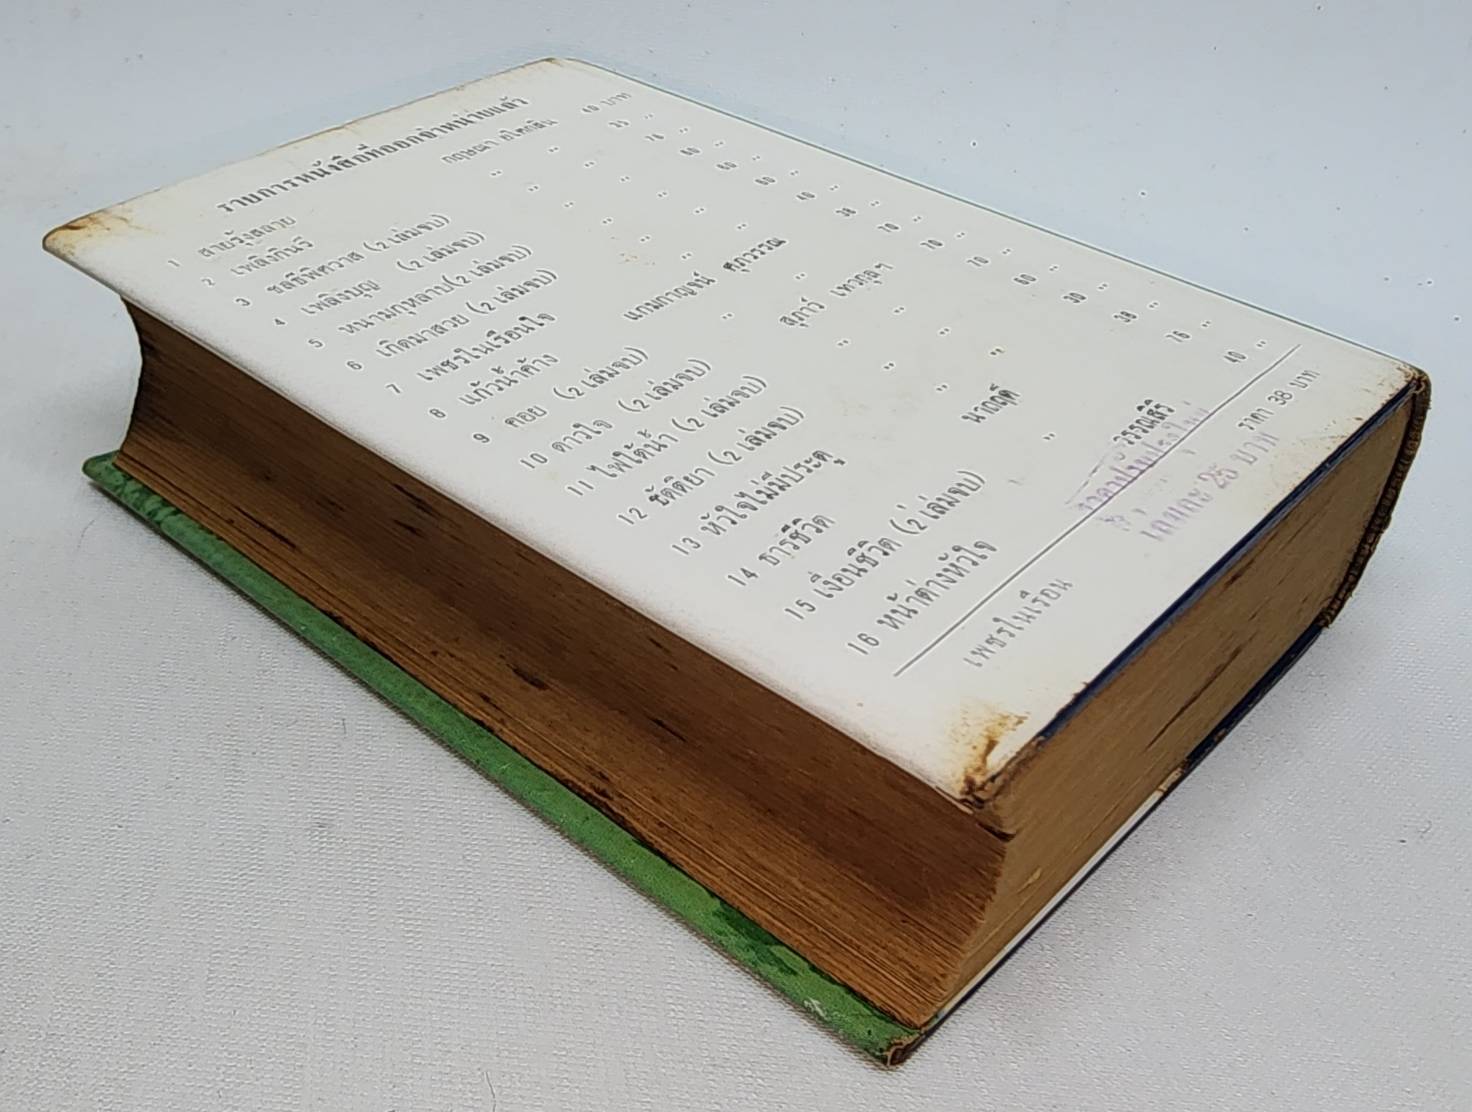 รายการหนังสือที่ออกจำหน่ายแล้ว
1 สายรุ้งสลาย กฤษณา อโศกสิน 40 บาท
2 เพลิงกินรี " 35 "
3 ชลธีพิศวาส (2 เล่มจบ) " 76 "
4 เพลิงบุญ (2 เล่มจบ) " 60 "
5 หนามกุหลาบ (2 เล่มจบ) " 60 "
6 เกิดมาสวย (2 เล่มจบ) " 60 "
7 เพชรในเรือนใจ " 40 "
8 แก้วน้ำค้าง แกมกาญจน์ ศุภวรรณ 38 "
9 คอย (2 เล่มจบ) " 70 "
10 ดาวใจ (2 เล่มจบ) สุภาว์ เทวกุลฯ 70 "
11 ไฟใต้น้ำ (2 เล่มจบ) " 70 "
12 ขัตติยา (2 เล่มจบ) " 60 "
13 หัวใจไม่มีประตู " 30 "
14 ธารชีวิต " 38 "
15 เงื่อนชีวิต (2 เล่มจบ) นาถฤดี 76 "
16 หน้าต่างหัวใจ " 40 "
เพชรในเรือน วรรณสิริ ราคา 38 บาท
25 บาท